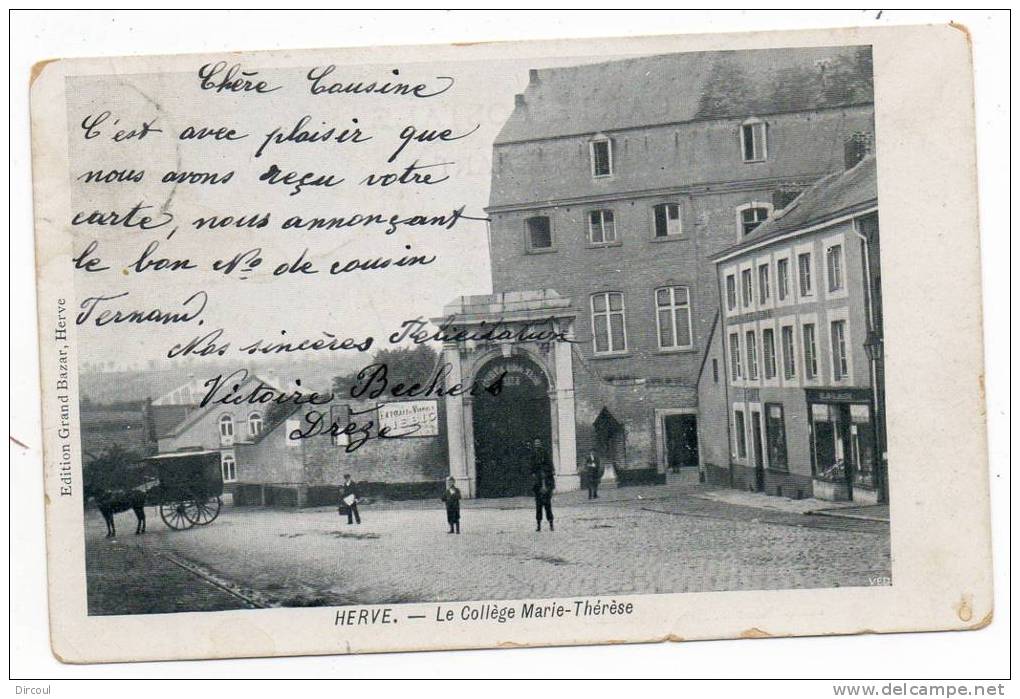 Chère Cousine
C'est avec plaisir que
nous avons reçu votre
carte, nous annonçant
le bon No de cousin
Fernand.
Nos sincères Félicitation
Victoire Bechers
Drèze
Edition Grand Bazar, Herve
HERVE. — Le Collège Marie-Thérèse
VED
Dircoul
www.delcampe.net